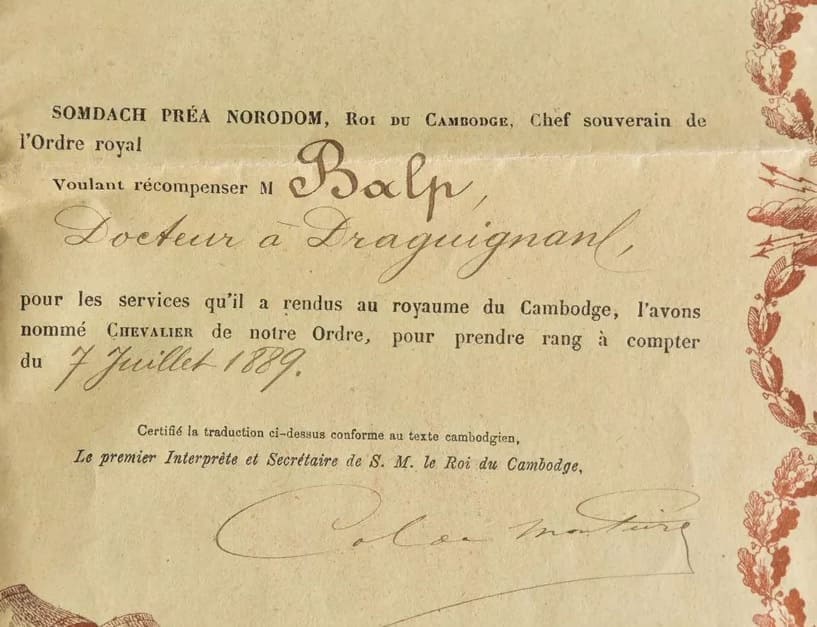 SOMDACH PRÉA NORODOM, ROI DU CAMBODGE, Chef souverain de
l'Ordre royal
Voulant récompenser M Balp,
Docteur à Draguignan,
pour les services qu'il a rendus au royaume du Cambodge, l'avons
nommé CHEVALIER de notre Ordre, pour prendre rang à compter
du 7 Juillet 1889.
Certifié la traduction ci-dessus conforme au texte cambodgien,
Le premier Interprète et Secrétaire de S. M. le Roi du Cambodge,